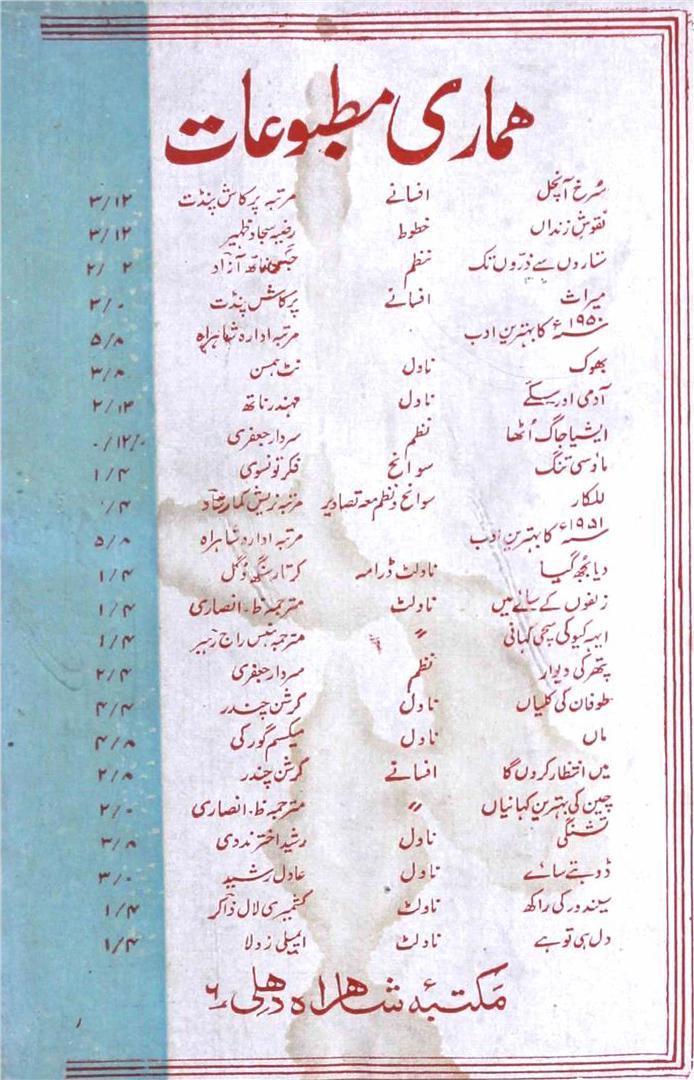 ھماری مطبوعات
سُرخ آنچل افسانے مرتبہ پرکاش پنڈت ۳/۱۲
نقوشِ زنداں خطوط رضیہ سجاد ظہیر ۳/۱۲
ستاروں سے ذرّوں تک نظم جگن ناتھ آزاد ۲/۲
میراث افسانے پرکاش پنڈت ۲/۰
۱۹۵۰ء کا بہترین ادب مرتبہ ادارہ شاہراہ ۵/۸
بھوک ناول نٹ ہمسن ۳/۸
آدمی اور سکّے ناول مہندر ناتھ ۲/۱۴
ایشیا جاگ اُٹھا نظم سردار جعفری ۰/۱۲/۰
ماؤسی تنگ سوانح فکر تونسوی ۱/۴
للکار سوانح و نظم معہ تصاویر مرتبہ نریش کمار شاد
۱۹۵۱ء کا بہترین ادب مرتبہ ادارہ شاہراہ ۵/۸
دیا بُجھ گیا ناولٹ ڈرامہ کرتار سنگھ دُگل ۱/۴
زلفوں کے سائے میں ناولٹ مترجمہ ظ۔ انصاری ۱/۴
ایہہ کیو کی سچی کہانی 〃 مترجمہ ہنس راج رہبر ۱/۴
پتھر کی دیوار نظم سردار جعفری ۲/۴
طوفان کی کلیاں ناول کرشن چندر ۴/۴
ماں ناول میکسم گورکی ۴/۸
میں انتظار کروں گا افسانے کرشن چندر ۲/۸
چین کی بہترین کہانیاں 〃 مترجمہ ظ۔ انصاری ۲/۰
تشنگی ناول رشید اختر ندوی ۳/۸
ڈوبتے سائے ناول عادل رشید ۳/۰
سیندور کی راکھ ناولٹ کشمیری لال ذاکر ۱/۴
دل ہی تو ہے ناولٹ ایمیلی زولا ۱/۴
مکتبۂ شاھراہ دھلی ۶